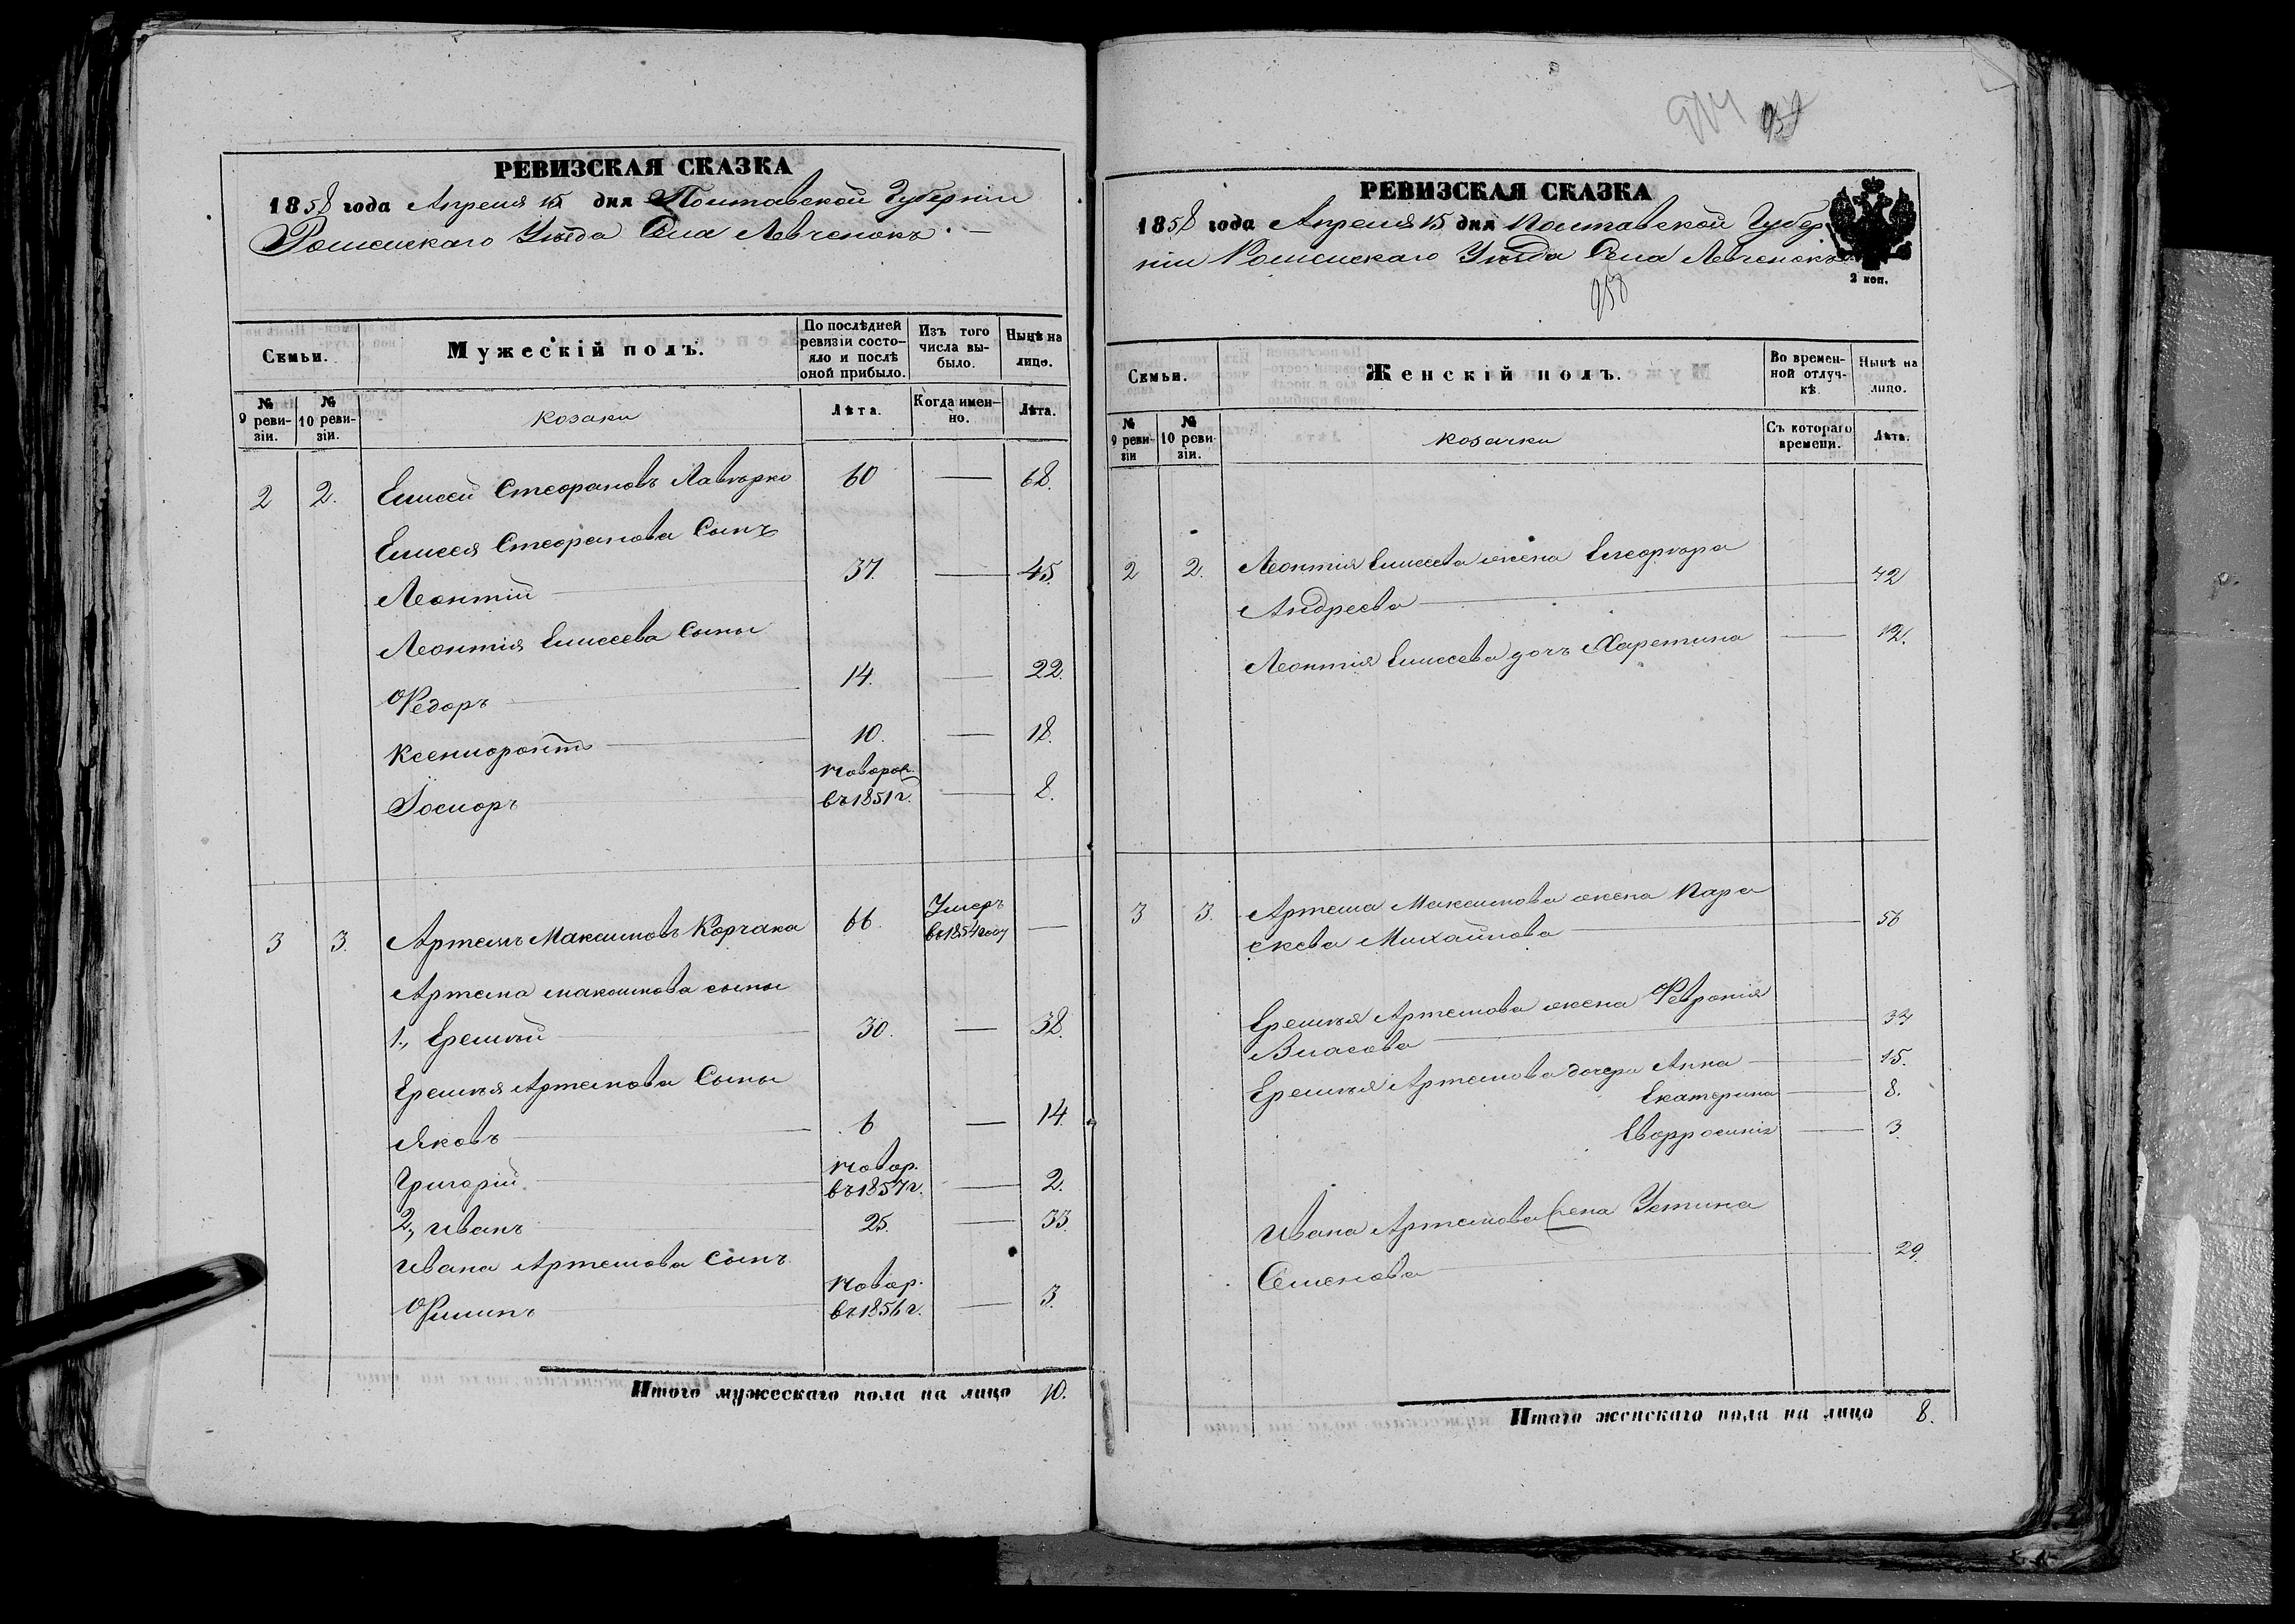 РЕВИЗСКАЯ СКАЗКА
1858 года Апреля 15 дня Полтавской Губерніи
Роменскаго Уѣзда Села Левченокъ.
Семьи.
Мужескій полъ.
По послѣдней ревизіи состояло и послѣ оной прибыло.
Изъ того числа выбыло.
Нынѣ на лицо.
№ 9 ревизіи.
№ 10 ревизіи.
Козаки
Лѣта.
Когда именно.
Лѣта.
2 2. Елисей Стефановъ Лавѣрко 60 — 68.
Елисея Стефанова Сынъ
Леонтій 37. — 45.
Леонтія Елисеева Сыны
Федоръ 14. — 22.
Ксенофонтъ 10. — 18.
Іосифъ новорож. въ 1851 г. — 8.
3 3. Артемъ Максимовъ Корчака 66. Умеръ въ 1854 году —
Артема Максимова сыны
1., Еремѣй 30. — 38.
Еремѣя Артемова Сыны
Яковъ 6 — 14.
Григорій новор. въ 1857 г. — 2.
2., Иванъ 25. — 33.
Ивана Артемова Сынъ
Филипъ новор. въ 1856 г. — 3.
Итого мужескаго пола на лицо 10.
РЕВИЗСКАЯ СКАЗКА
1858 года Апреля 15 дня Полтавской Губер
ніи Роменскаго Уѣзда Села Левченокъ
2 коп.
958
Семьи.
Женскій полъ.
Во временной отлучкѣ.
Нынѣ на лицо.
№ 9 ревизіи
№ 10 ревизіи.
Козачки
Съ котораго времени.
Лѣта.
2 2. Леонтія Елисеева жена Гликерія
Андреева 42
Леонтія Елисеева дочь Харетина — 12.
3 3. Артема Максимова жена Пара
скева Михайлова 56
Еремѣя Артемова жена Февронія
Власова 34
Еремѣя Артемова дочери Анна — 15.
Екатерина — 8.
Евфросинія — 3.
Ивана Артемова жена Устина
Семенова 29.
Итого женскаго пола на лицо 8.